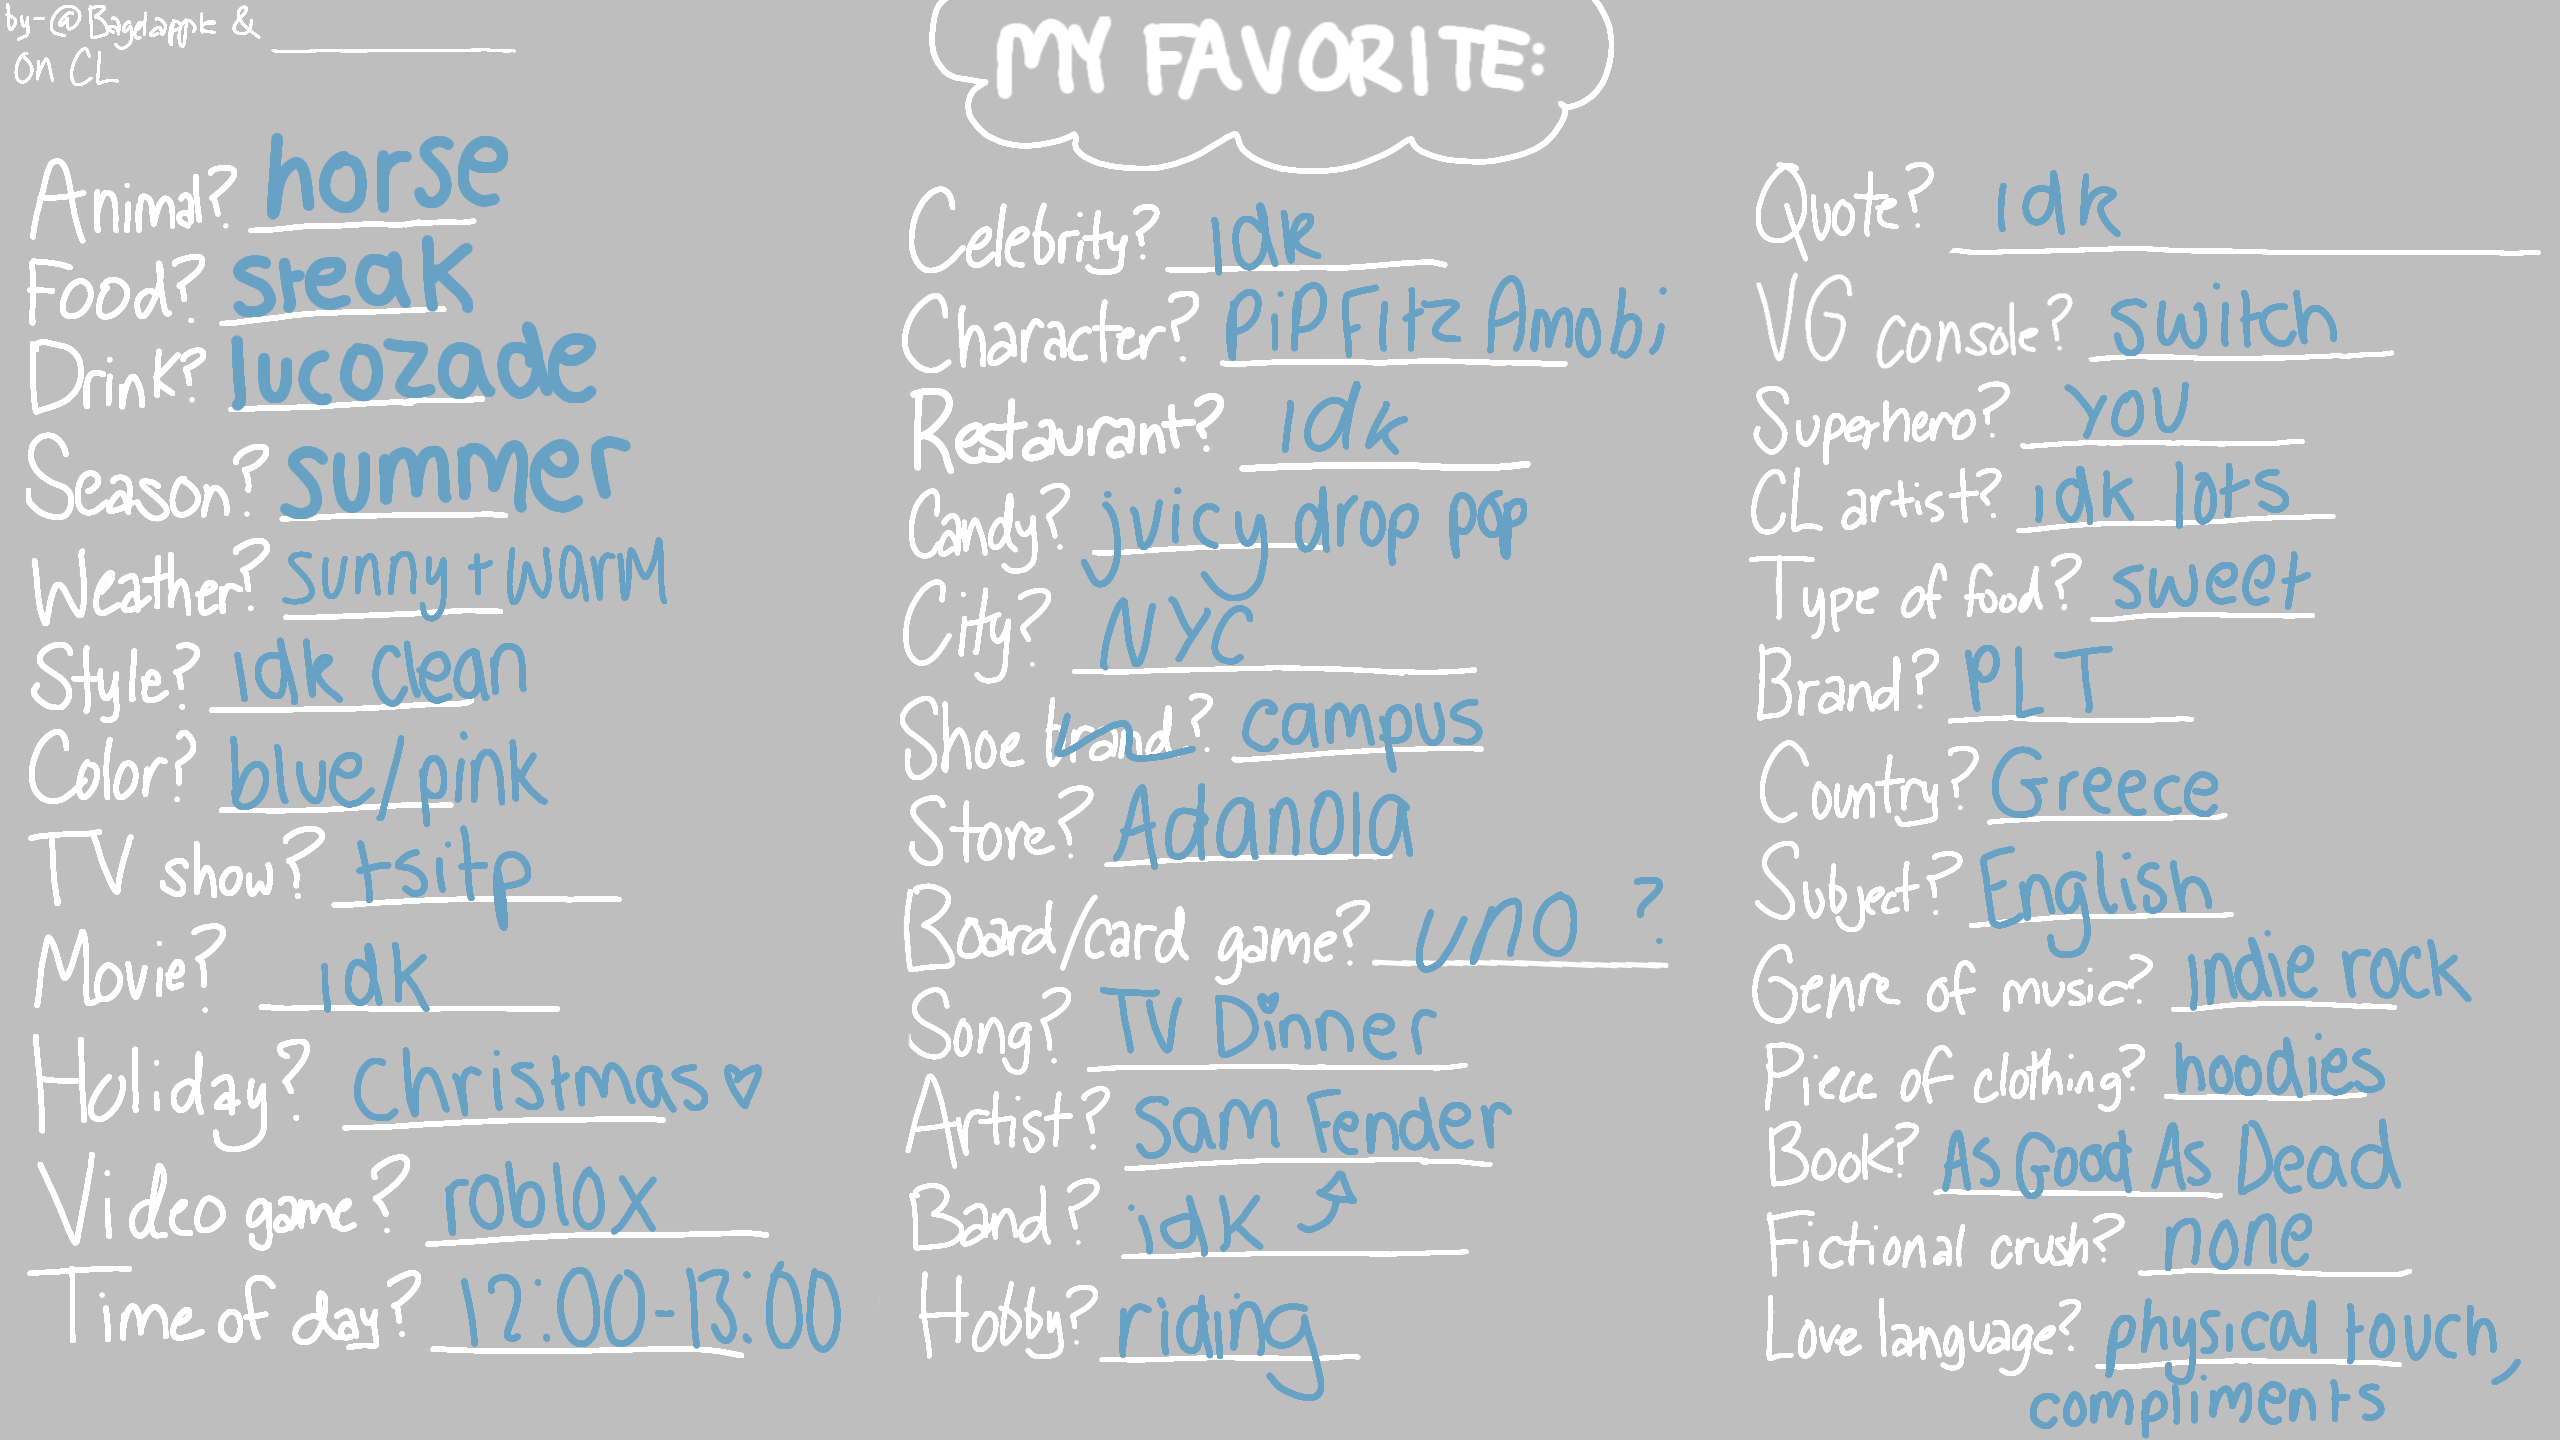 by-@Bagelapple &
on CL
MY FAVORITE:
Animal? horse
Food? steak
Drink? lucozade
Season? summer
Weather? sunny + warm
Style? idk clean
Color? blue/pink
TV show? tsitp
Movie? idk
Holiday? Christmas ♡
Video game? roblox
Time of day? 12:00-13:00
Celebrity? idk
Character? PiP Fitz Amobi
Restaurant? idk
Candy? juicy drop pop
City? NYC
Shoe brand? campus
Store? Adanola
Board/card game? uno ?
Song? TV Dinner
Artist? Sam Fender
Band? idk
Hobby? riding
Quote? idk
VG console? switch
Superhero? you
CL artist? idk lots
Type of food? sweet
Brand? PLT
Country? Greece
Subject? English
Genre of music? indie rock
Piece of clothing? hoodies
Book? As Good As Dead
Fictional crush? none
Love language? physical touch,
compliments